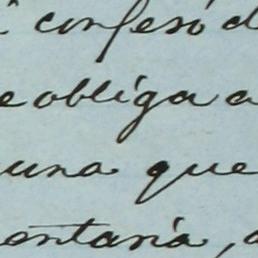 confesó d
e obliga a
una que
entaria,